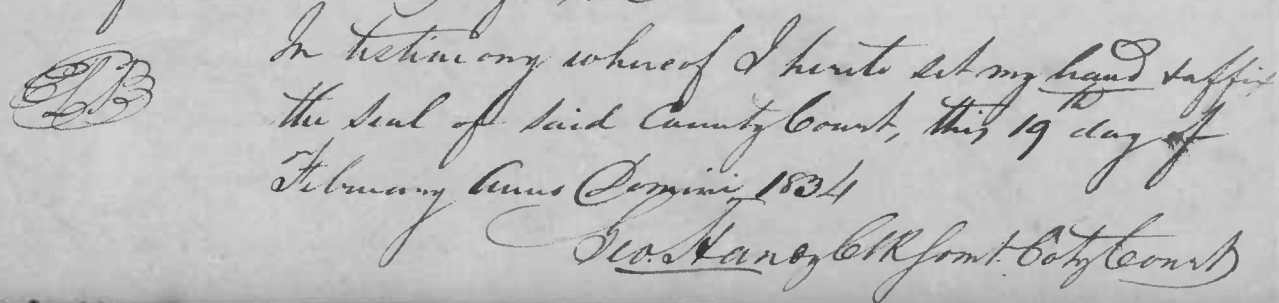 In testimony whereof I hereto set my hand & affix
the seal of said County Court, this 19th day of
February Anno Domini 1834
Geo. Handy Clk Somt. Coty Court